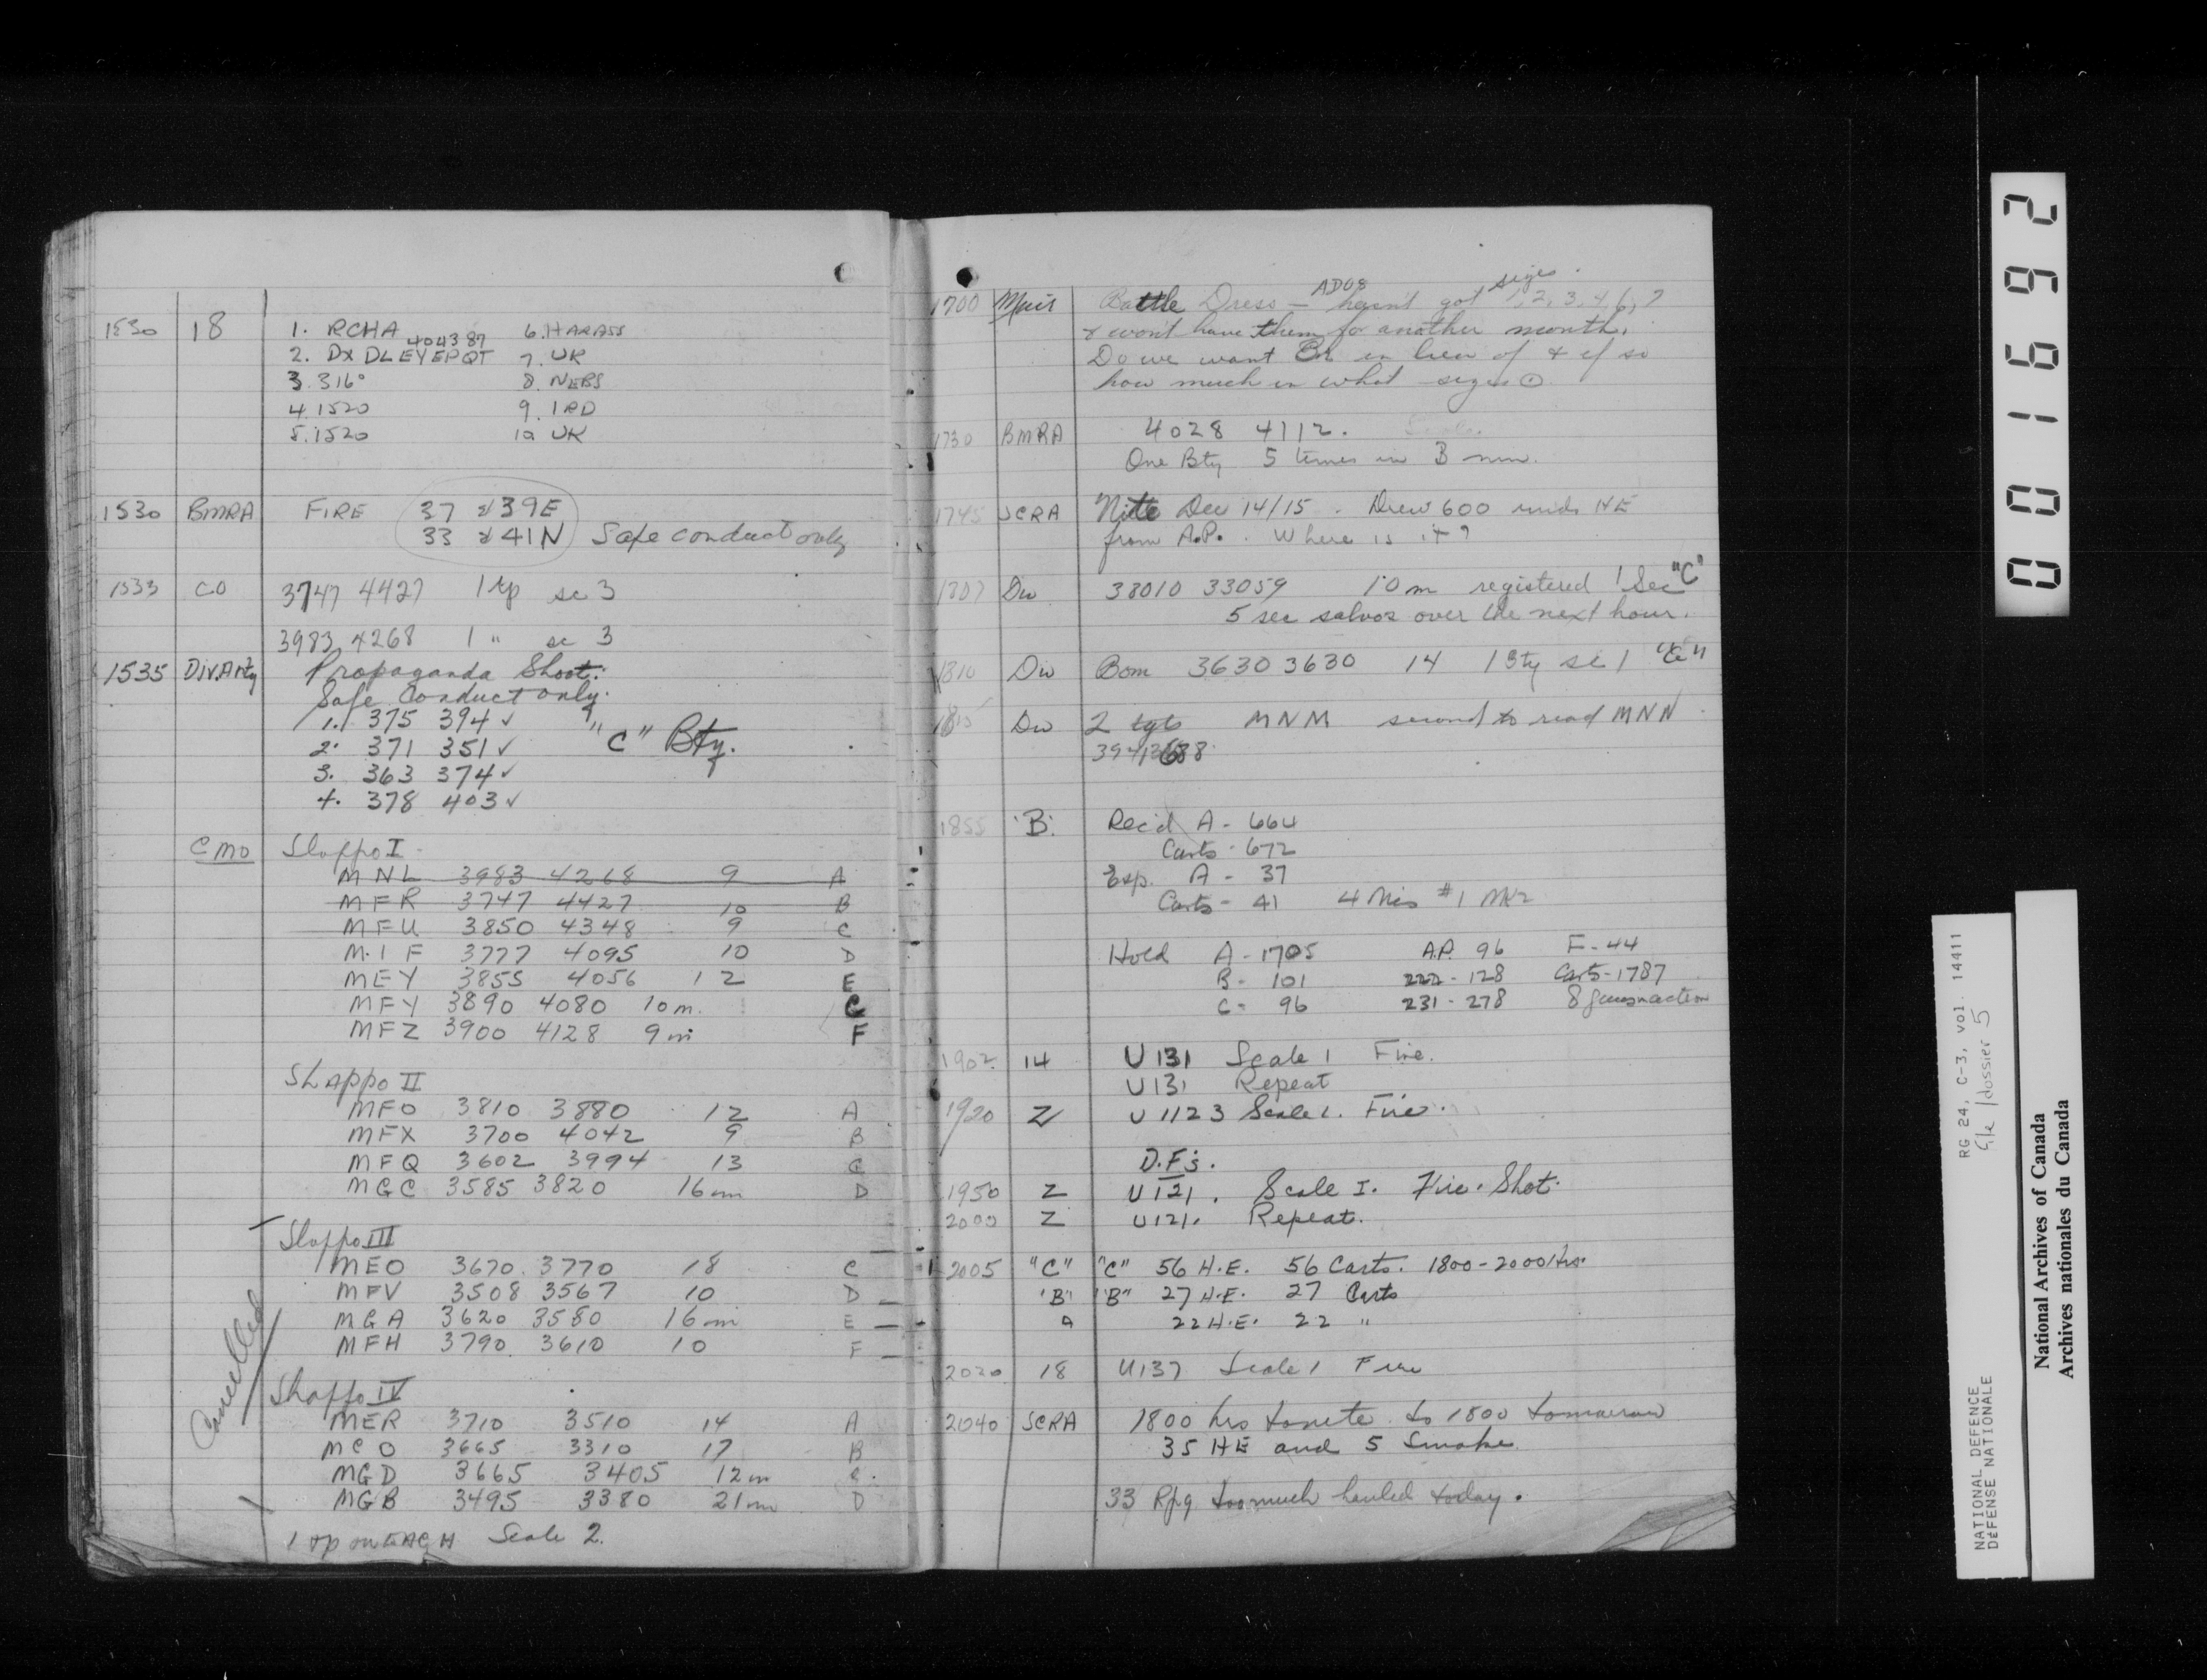 1530 18 1. RCHA 6. HARASS
404387
2. DX DLEYEPQT 7. UK
3. 316° 8. NEBS
4. 1520 9. 1 RD
5. 1520 10 UK
1530 BMRA FIRE 37 & 39E
33 & 41N Safe conduct only
1533 CO 3747 4427 1 rp sc 3
3983 4268 1 " sc 3
1535 Div. Arty Propaganda Shoot.
Safe Conduct only.
1. 375 394 ✓
2. 371 351 ✓ "C" Bty.
3. 363 374 ✓
4. 378 403 ✓
CMO Slappo I
MNL 3983 4268 9 A
MFR 3747 4427 10 B
MFU 3850 4348 9 C
M.I F 3777 4095 10 D
MEY 3855 4056 12 E
MFY 3890 4080 10m. C
MFZ 3900 4128 9m F
SLAPPO II
MFO 3810 3880 12 A
MFX 3700 4042 9 B
MFQ 3602 3994 13 C
MGC 3585 3820 16m D
Slappo III
MEO 3670 3770 18 C
MFV 3508 3567 10 D
MGA 3620 3580 16m E
MFH 3790 3610 10 F
Cancelled
Slappo IV
MER 3710 3510 14 A
MCO 3665 3310 17 B
MGD 3665 3405 12m C.
MGB 3495 3380 21m D
1 rp on EACH Scale 2.
1700 Muir Battle Dress - ADOS hasn't got sizes 1, 2, 3, 4, 6, 7
& won't have them for another month.
Do we want Br in lieu of & if so
how much in what sizes
1730 BMRA 4028 4112.
One Bty 5 times in 3 min.
1745 SCRA Nite Dec 14/15. Drew 600 rnds HE
from A.P.. Where is it?
1807 Div 38010 33059 10m registered 1 Sec "C"
5 sec salvos over the next hour.
1810 Div Bom 3630 3630 14 1 Bty sc 1 "C"
1815 Div 2 tgts MNM second to read MNN
1855 'B' Rec'd A - 664
Carts - 672
Exp. A - 37
Carts - 41 4 Mis #1 Mk2
Hold A - 1705 A.P. 96 F - 44
B - 101 222 - 128 Carts - 1787
C - 96 231 - 278 8 guns in action
1902 14 U131 Scale 1 Fire.
U131 Repeat
1920 Z U1123 Scale 1. Fire.
D.F's.
1950 Z U121. Scale I. Fire. Shot.
2000 Z U121. Repeat.
2005 "C" "C" 56 H.E. 56 Carts. 1800-2000 Hrs.
'B' 'B" 27 H.E. 27 Carts
A 22 H.E. 22 "
2020 18 U137 Scale 1 Fire
2040 SCRA 1800 hrs tonite to 1800 tomorrow
35 HE and 5 Smoke.
33 Rpg too much hauled today.
001692
RG 24, C-3, vol. 14411
file/dossier 5
NATIONAL DEFENCE
DÉFENSE NATIONALE
National Archives of Canada
Archives nationales du Canada